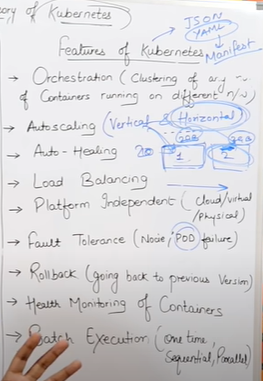 ory of Kubernetes
JSON
YAML
Manifest
Features of Kubernetes
→ Orchestration (Clustering of any no.
of Containers running on different n/w)
→ Autoscaling (Vertical & Horizontal)
→ Auto-Healing
1
2
→ Load Balancing
→ Platform Independent (Cloud/virtual
/Physical)
→ Fault Tolerance (Node/POD failure)
→ Rollback (going back to previous version)
→ Health Monitoring of Containers
→ Batch Execution (one time,
Sequential, Parallel)